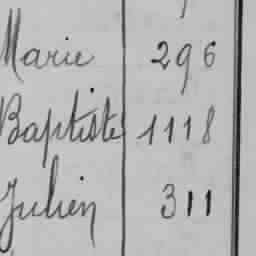 Marie 296
Baptiste 1118
Julien 311